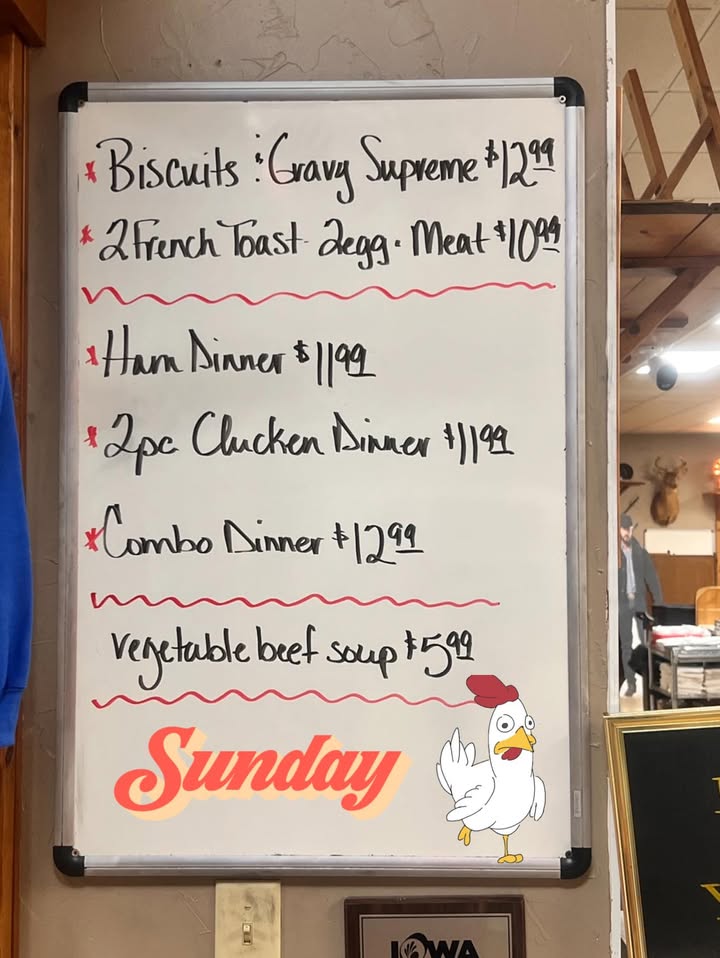 * Biscuits & Gravy Supreme $12.99
* 2 French Toast - 2 egg - Meat $10.99
* Ham Dinner $11.99
* 2pc Chicken Dinner $11.99
* Combo Dinner $12.99
vegetable beef soup $5.99
Sunday
IOWA